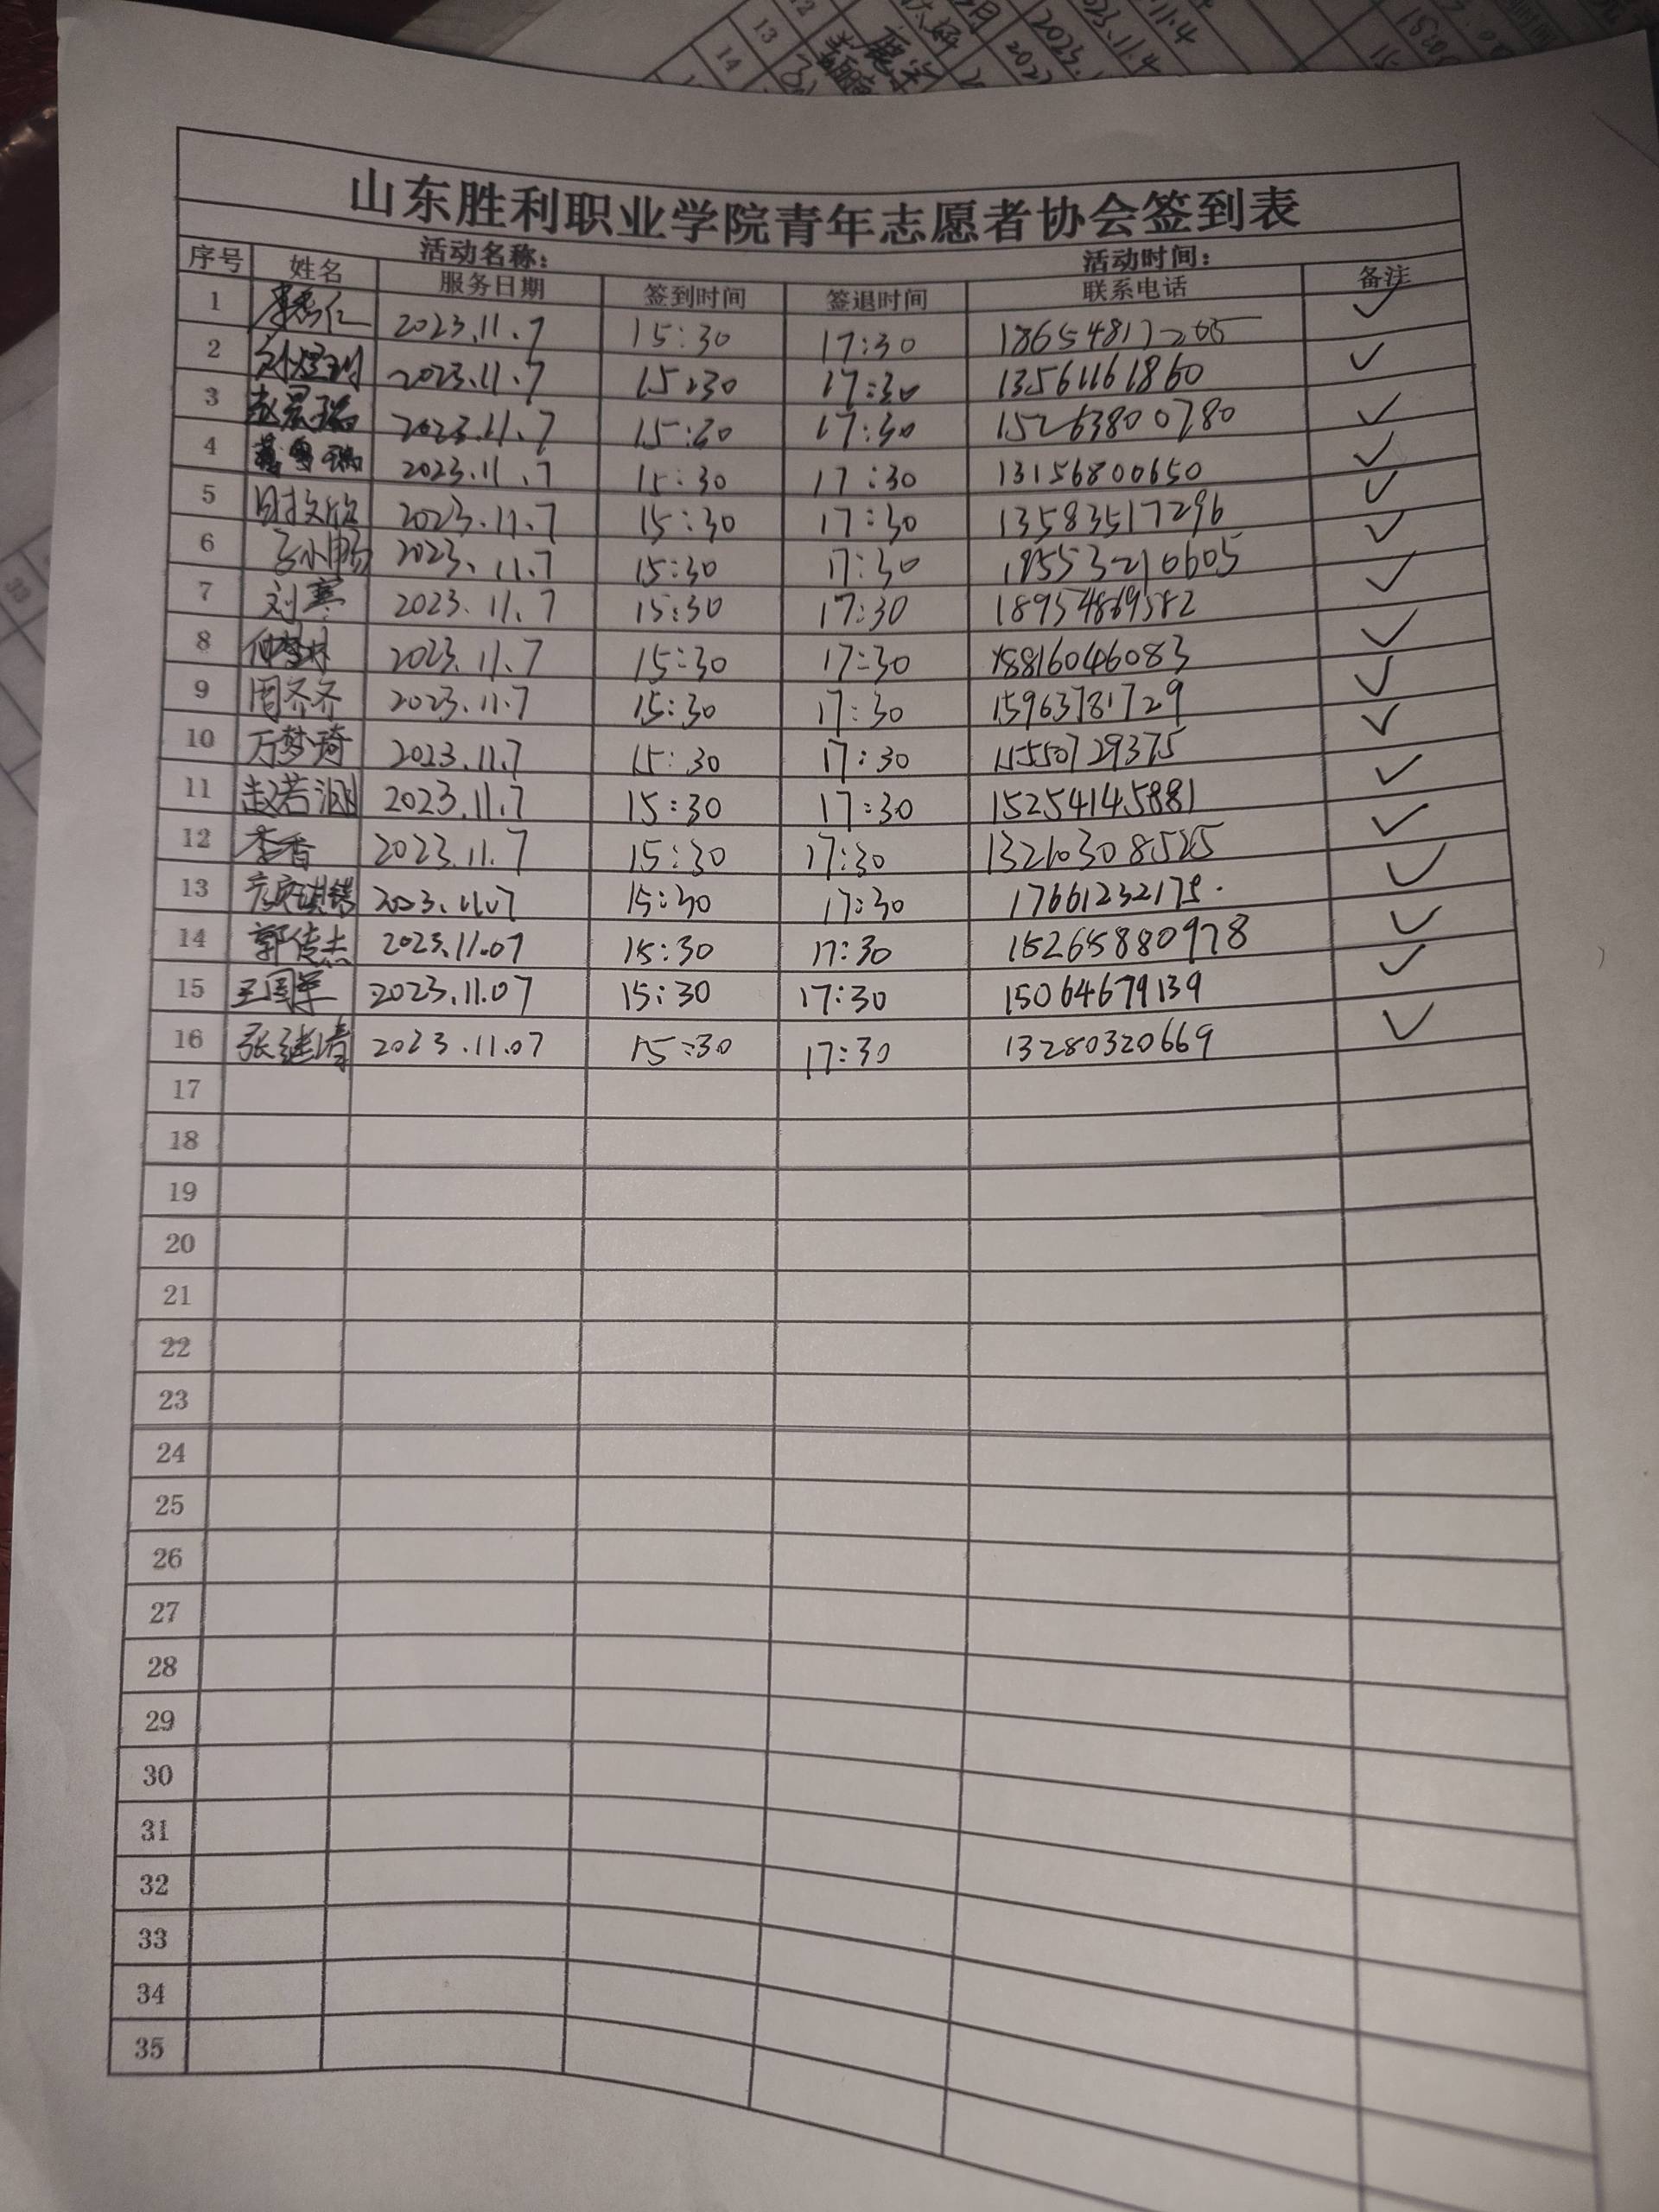 山东胜利职业学院青年志愿者协会签到表
活动名称： 活动时间：
序号 姓名 服务日期 签到时间 签退时间 联系电话 备注
1 2023.11.7 15:30 17:30 ✓
2 2023.11.7 15:30 17:30 13561161860 ✓
3 赵晨瑞 2023.11.7 15:30 17:30 15263800780 ✓
4 2023.11.7 15:30 17:30 13156800650 ✓
5 时文欣 2023.11.7 15:30 17:30 13583517296 ✓
6 2023.11.7 15:30 17:30 18553210605 ✓
7 刘寒 2023.11.7 15:30 17:30 18954869582 ✓
8 2023.11.7 15:30 17:30 18816046083 ✓
9 周齐齐 2023.11.7 15:30 17:30 15963781729 ✓
10 万梦琦 2023.11.7 15:30 17:30 15550729375 ✓
11 赵若涵 2023.11.7 15:30 17:30 15254145881 ✓
12 李香 2023.11.7 15:30 17:30 13210308525 ✓
13 2023.11.07 15:30 17:30 ✓
14 郭传杰 2023.11.07 15:30 17:30 15265880978 ✓
15 王国军 2023.11.07 15:30 17:30 15064679139 ✓
16 张继清 2023.11.07 15:30 17:30 13280320669 ✓
17
18
19
20
21
22
23
24
25
26
27
28
29
30
31
32
33
34
35